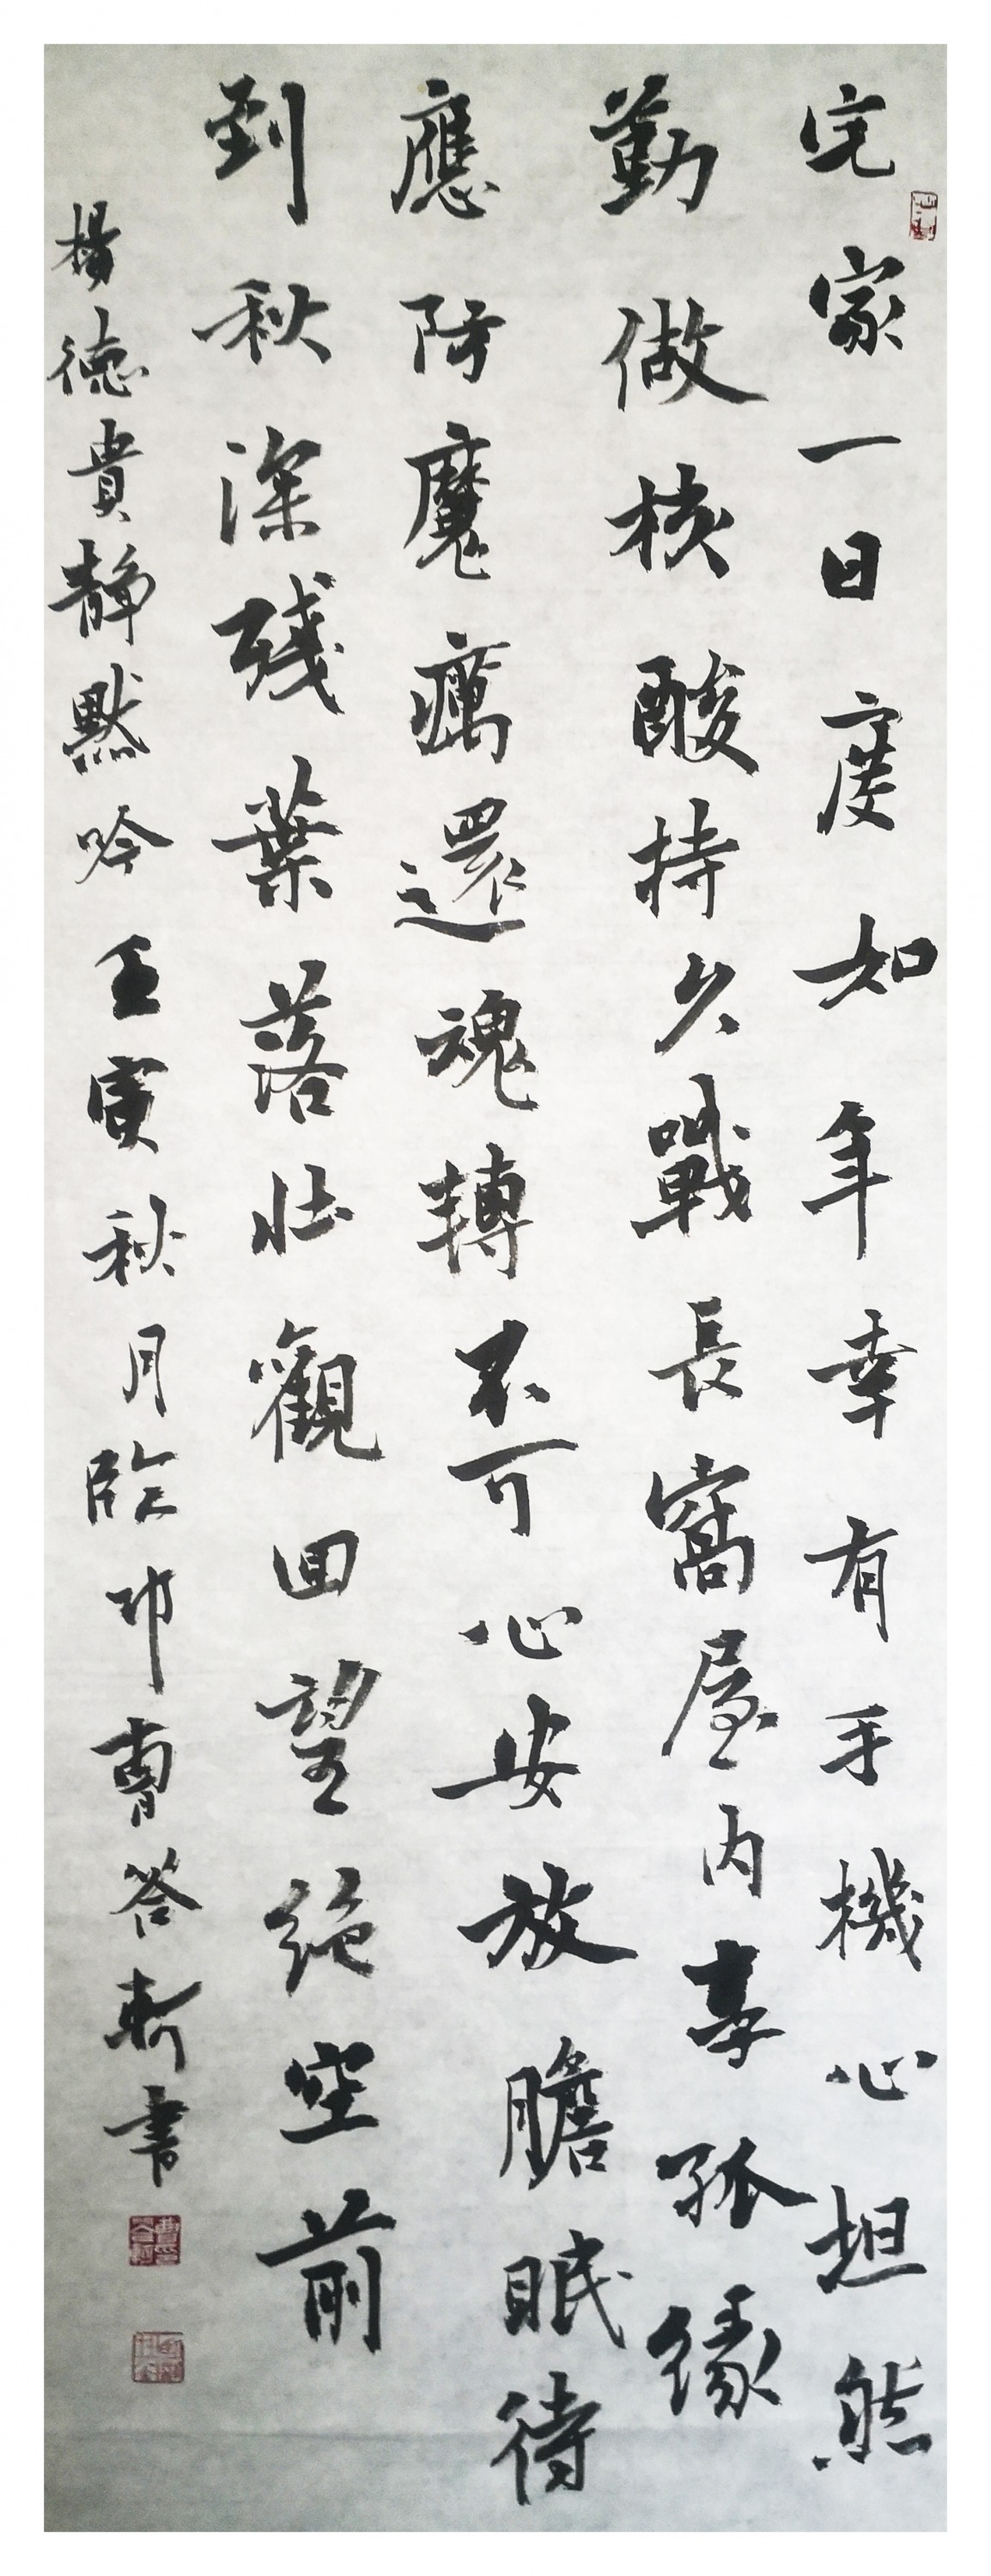 宅家一日度如年幸有手機心坦然
勤做核酸持久戰長窩屋内享孤緣
應防魔癘還魂轉不可心安放膽眠待
到秋深殘葉落壯觀回望絕空前
楊德貴靜默吟壬寅秋月臨邛曹答軒書